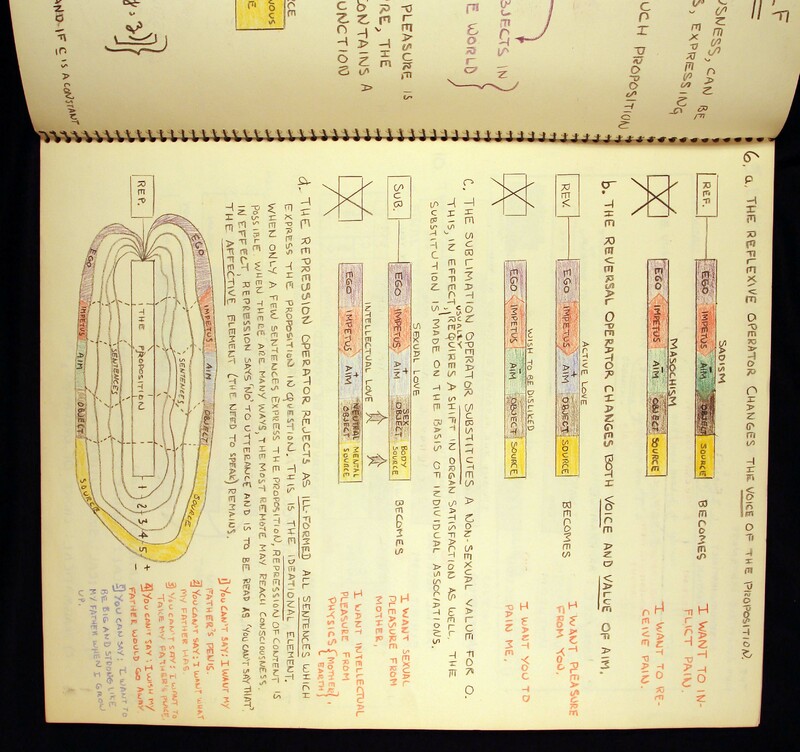 F
USNESS, CAN BE
S, EXPRESSING
UCH PROPOSITION
BJECTS IN
E WORLD
PLEASURE IS
RE, THE
CONTAINS A
UNCTION
CE
VOUS
AND-IF E IS A CONSTANT
6. a. THE REFLEXIVE OPERATOR CHANGES THE VOICE OF THE PROPOSITION.
SADISM
REF. EGO IMPETUS + AIM OBJECT SOURCE BECOMES
I WANT TO IN-
FLICT PAIN.
MASOCHISM
EGO IMPETUS - AIM OBJECT SOURCE
I WANT TO RE-
CEIVE PAIN.
b. THE REVERSAL OPERATOR CHANGES BOTH VOICE AND VALUE OF AIM.
ACTIVE LOVE
REV. EGO IMPETUS + AIM OBJECT SOURCE BECOMES
I WANT PLEASURE
FROM YOU.
WISH TO BE DISLIKED
EGO IMPETUS - AIM OBJECT SOURCE
I WANT YOU TO
PAIN ME.
C. THE SUBLIMATION OPERATOR SUBSTITUTES A NON-SEXUAL VALUE FOR O.
THIS, IN EFFECT, USUALLY REQUIRES A SHIFT IN ORGAN SATISFACTION AS WELL. THE
SUBSTITUTION IS MADE ON THE BASIS OF INDIVIDUAL ASSOCIATIONS.
SEXUAL LOVE
SUB. EGO IMPETUS + AIM SEX OBJECT BODY SOURCE BECOMES
I WANT SEXUAL
PLEASURE FROM
MOTHER.
INTELLECTUAL LOVE
EGO IMPETUS + AIM NEUTRAL OBJECT MENTAL SOURCE
I WANT INTELLECTUAL
PLEASURE FROM
PHYSICS {MOTHER EARTH}.
d. THE REPRESSION OPERATOR REJECTS AS ILL-FORMED ALL SENTENCES WHICH
EXPRESS THE PROPOSITION IN QUESTION. THIS IS THE IDEATIONAL ELEMENT.
WHEN ONLY A FEW SENTENCES EXPRESS THE PROPOSITION, REPRESSION OF CONTENT IS
POSSIBLE. WHEN THERE ARE MANY WAYS, THE MOST REMOTE MAY REACH CONSCIOUSNESS.
IN EFFECT, REPRESSION SAYS 'NO' TO UTTERANCE AND IS TO BE READ AS 'YOU CAN'T SAY THAT'.
THE AFFECTIVE ELEMENT (THE NEED TO SPEAK) REMAINS.
REP.
EGO IMPETUS AIM OBJECT SOURCE
SENTENCES
THE PROPOSITION 1 2 3 4 5 + -
SENTENCES
EGO IMPETUS AIM OBJECT SOURCE
1) YOU CAN'T SAY: I WANT MY
FATHER'S PENIS.
2) YOU CAN'T SAY: I WANT WHAT
MY FATHER HAS.
3) YOU CAN'T SAY: I WANT TO
TAKE MY FATHER'S PLACE.
4) YOU CAN'T SAY: I WISH MY
FATHER WOULD GO AWAY
5) YOU CAN SAY: I WANT TO
BE BIG AND STRONG LIKE
MY FATHER WHEN I GROW
UP.